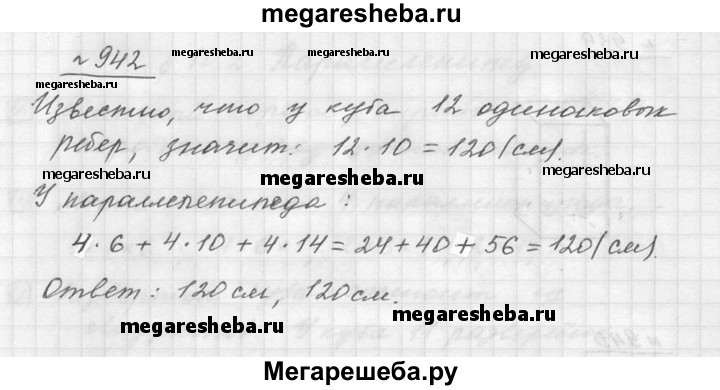 megaresheba.ru
№942
megaresheba.ru
megaresheba.ru
Известно, что у куба 12 одинаковых
ребер, значит: 12·10=120(см).
megaresheba.ru
У параллелепипеда:
4·6+4·10+4·14=24+40+56=120(см).
Ответ: 120см, 120см.
megaresheba.ru
megaresheba.ru
Мегарешеба.ру